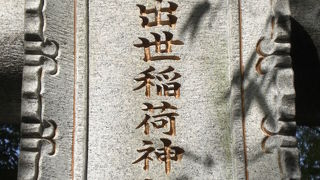 出世稲荷神